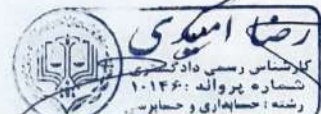 رضا امیدی
کارشناس رسمی دادگستری
شماره پروانه: ۱۰۱۴۶۰
رشته: حسابداری و حسابرسی